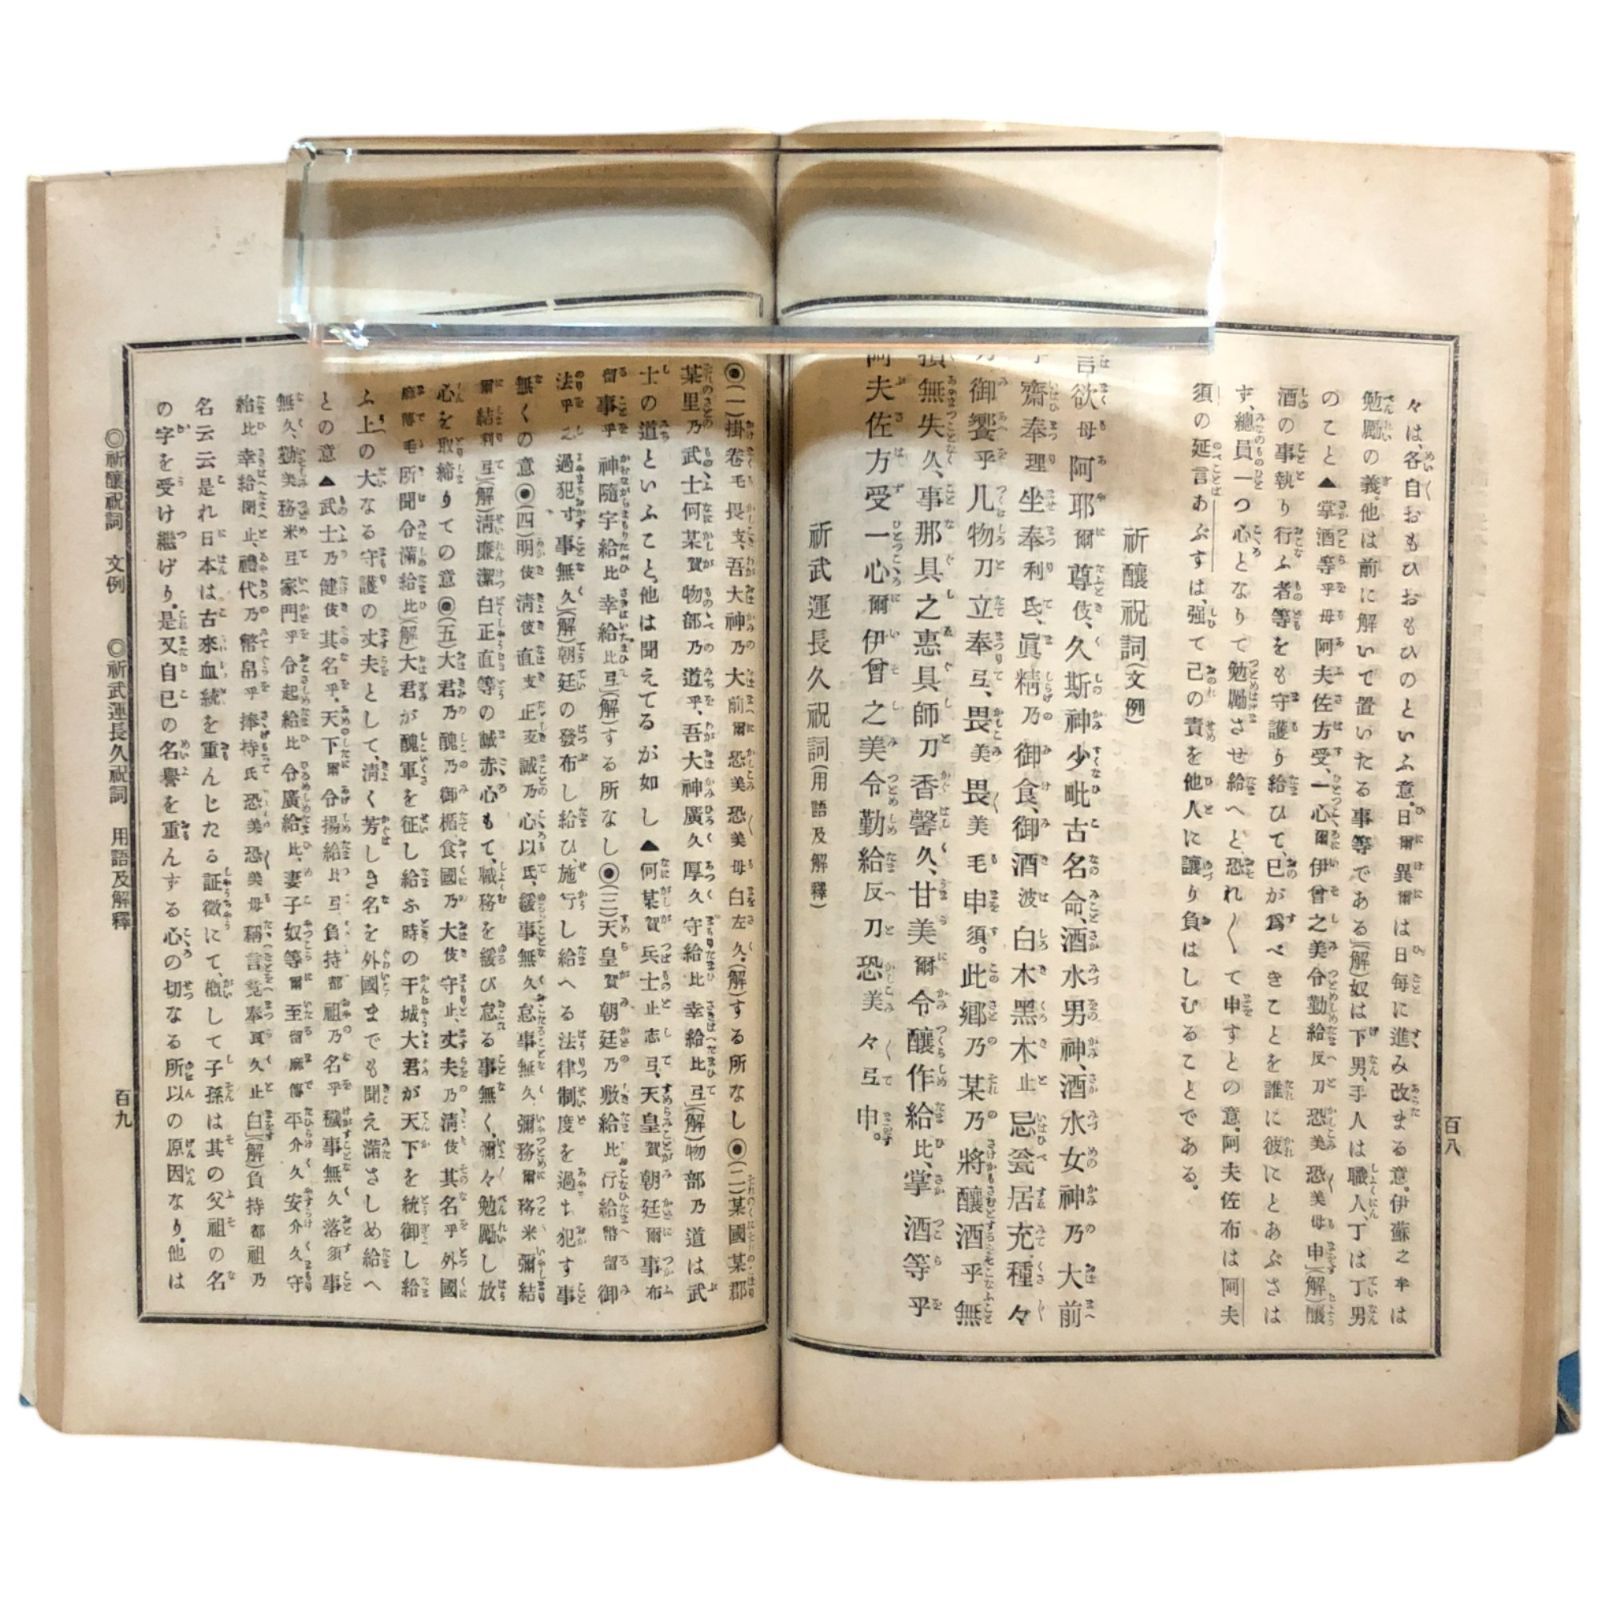 百八
々は、各自おもひおもひのといふ意。日爾異爾は日每に進み改まる意。伊蘇之牟は
勉勵の義。他は前に解いて置いたる事等である」(解)奴は下男、手人は職人、丁は丁男
のこと▲掌酒等乎母阿夫佐方受、一心爾伊曾之美令勤給反刀恐美恐美母申」(解)釀
酒の事執り行ふ者等をも守護り給ひて、已が爲べきことを誰に彼にとあぶさは
ず、總員一つ心となりて勉勵させ給へと、恐れ〱て申すとの意。阿夫佐布は阿夫
須の延言あぶすは、强て己の責を他人に讓り負はしむることである。
祈釀祝詞(文例)
言欲母阿耶爾尊伎、久斯神少毗古名命、酒水男神、酒水女神乃大前
齋奉理坐奉利氐、眞精乃御食、御酒波白木黑木止忌瓮居充、種々
御饗乎几物刀立奉弖、畏美畏美毛申須。此鄕乃某乃將釀酒乎無
無失久、事那具之惠具師刀香馨久、甘美爾令釀作給比、掌酒等乎
阿夫佐方受一心爾伊曾之美令勤給反刀恐美々弖申。
祈武運長久祝詞(用語及解釋)
◉(一)掛卷毛畏支、吾大神乃大前爾恐美恐美母白左久、(解)する所なし◉(二)某國某郡
某里乃武士何某賀物部乃道乎、吾大神廣久厚久守給比幸給比弖」(解)物部乃道は武
士の道といふこと、他は聞えてるが如し▲何某賀兵士止志弖、天皇賀朝廷爾事布
留事乎神隨守給比幸給比弖」(解)する所なし◉(三)天皇賀朝廷乃敷給比行給幣留御
法乎之過犯寸事無久」(解)朝廷の發布し給ひ施行し給へる法律制度を過ち犯す事
無くの意◉(四)明伎淸伎直支正支誠乃心以氐、緩事無久怠事無久彌務爾務米彌結
爾結利弖(解)淸廉潔白正直等の誠赤心もて、職務を緩び怠る事無く、彌々勉勵し放
心を取締りての意◉(五)大君乃醜乃御楯食國乃大伎守止、丈夫乃淸伎其名乎外國
麻傳毛所聞令滿給比(解)大君が醜軍を征し給ふ時の干城大君が天下を統御し給
ふ上の大なる守護の丈夫として淸く芳しき名を外國までも聞え滿さしめ給へ
との意▲武士乃健伎其名乎、天下爾令揚給比弖負持都祖乃名乎穢事無久落須事
無久、勤美務米弖家門乎令起給比令廣給比、妻子奴等爾至留麻傳平介久安介久守
給比幸給閉止、禮代乃幣帛乎捧持氐恐美恐美母稱言竟奉眞久止白」(解)負持都祖乃
名云云是れ日本は古來血統を重んじたる証徵にて、槪して子孫は其の父祖の名
の字を受け繼げり、是又自己の名譽を重んする心の切なる所以の原因なり。他は
◎祈釀祝詞 文例 ◎祈武運長久祝詞 用語及解釋 百九